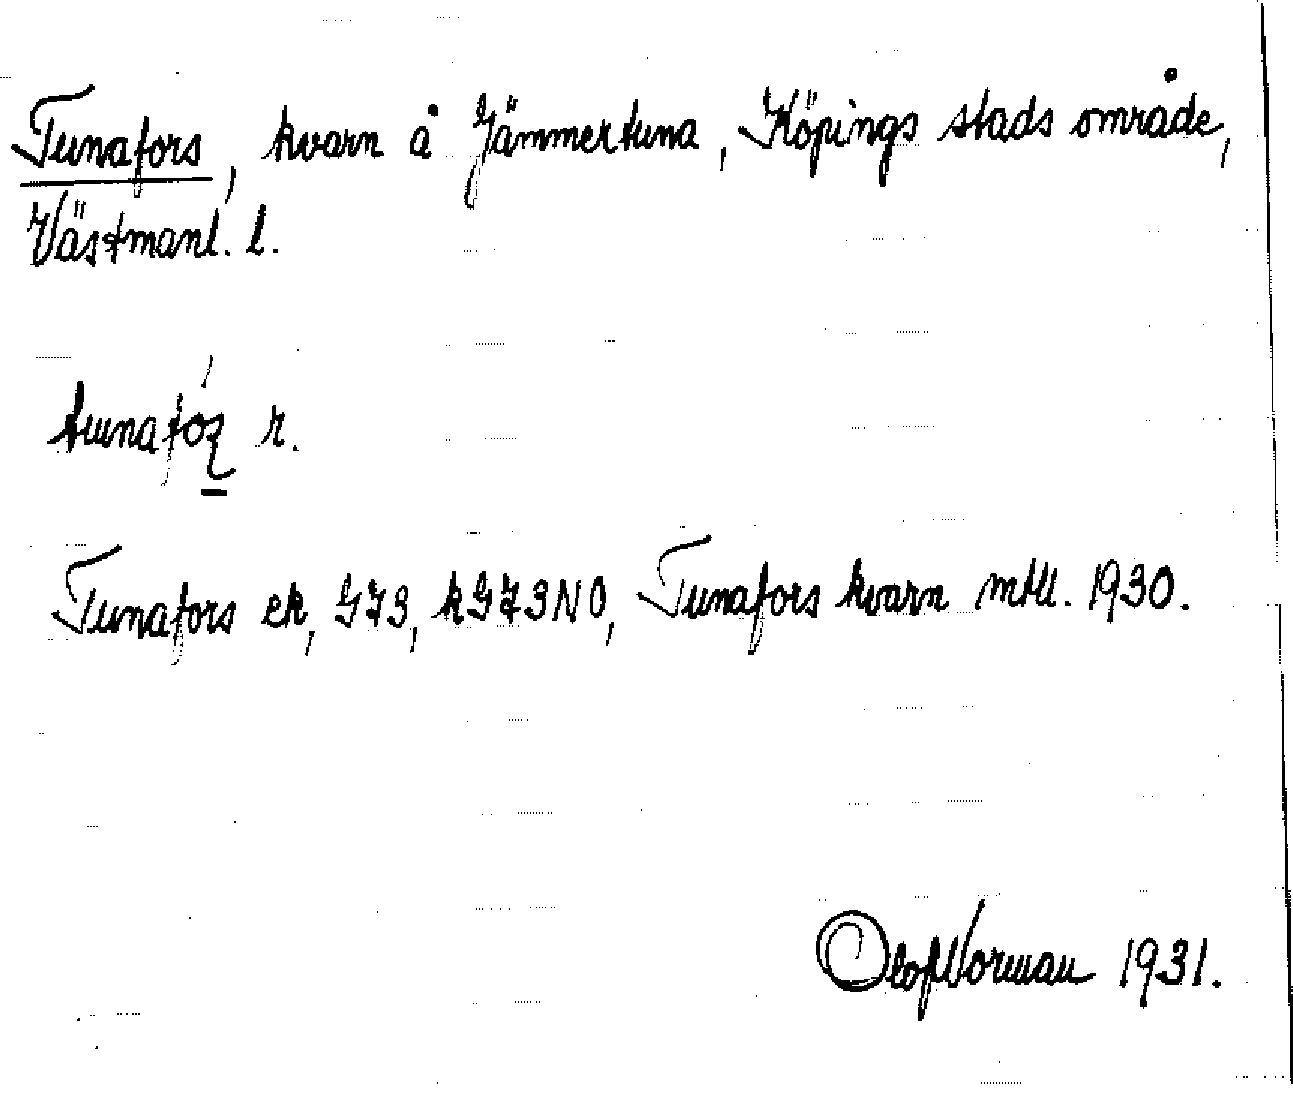 Tunafors, kvarn å Jämmertuna, Köpings stads område,
Västmanl. l.
tunafóʂ r.
Tunafors ek, GJ3, kGJ3NO, Tunafors kvarn mtll. 1930.
Olof Norman 1931.